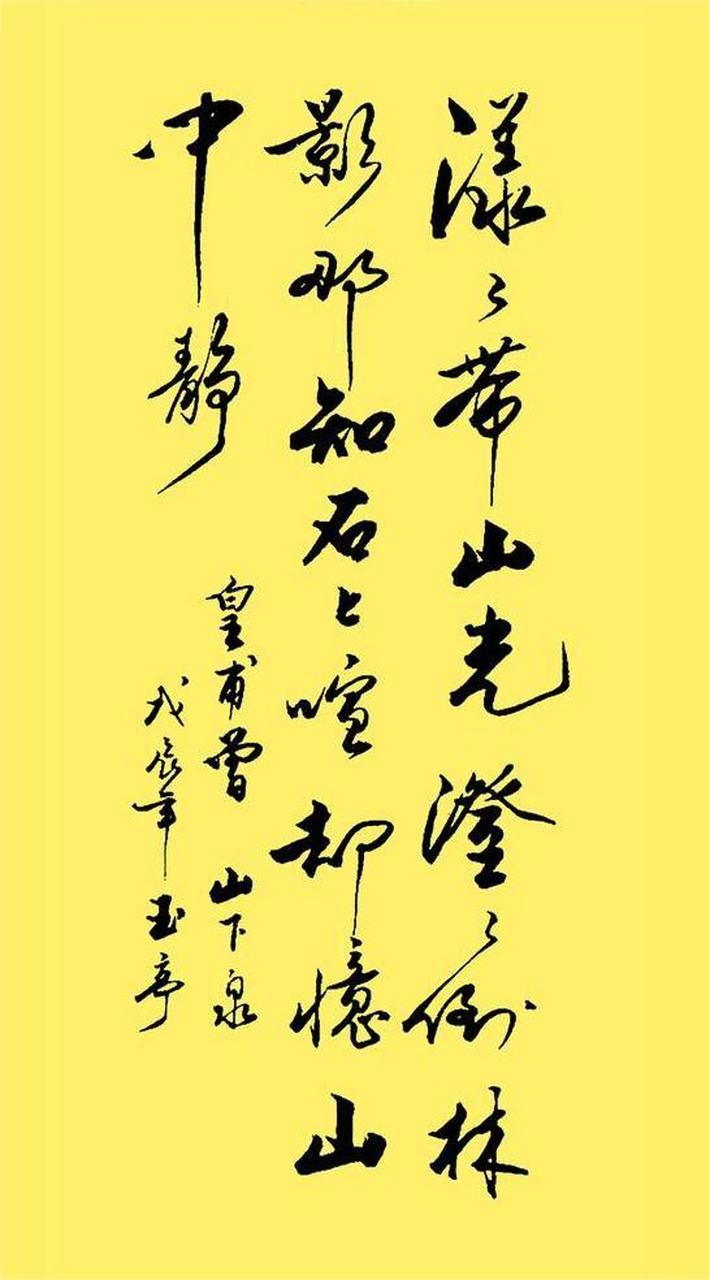 漾々带山光澄々倒林
影那知石上喧却憶山
中靜
皇甫曾 山下泉
戊辰年玉亭